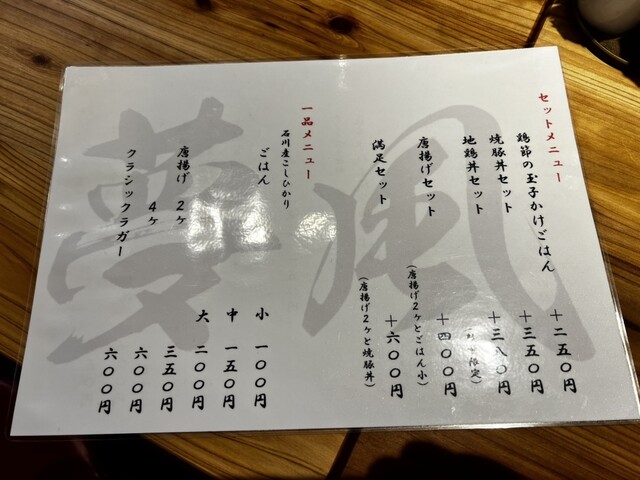 風夢
セットメニュー
鶏節の玉子かけごはん +二五〇円
焼豚丼セット +三五〇円
地鶏丼セット +三八〇円
限定)
唐揚げセット +四〇〇円
(唐揚げ2ヶとごはん小)
満足セット +六〇〇円
(唐揚げ2ヶと焼豚丼)
一品メニュー
石川産こしひかり
ごはん 小 一〇〇円
中 一五〇円
大 二〇〇円
唐揚げ 2ヶ 三五〇円
4ヶ 六〇〇円
クラシックラガー 六〇〇円